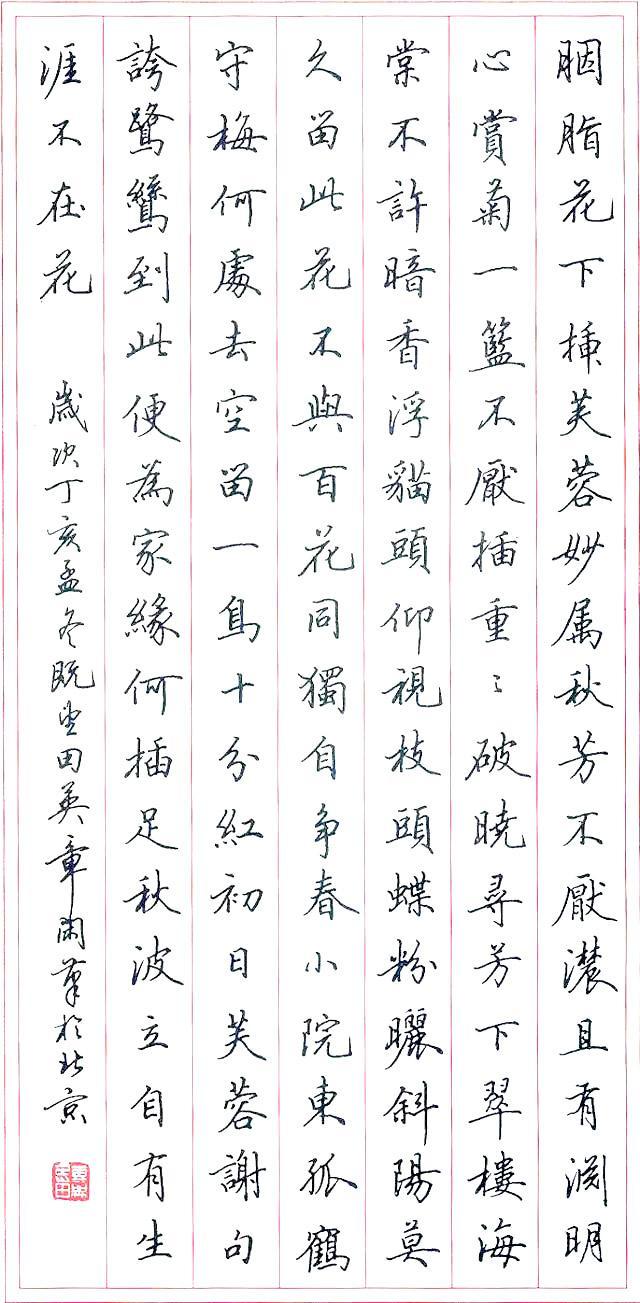 胭脂花下插芙蓉妙属秋芳不厭濃且有渕明
心賞菊一籃不厭插重〻破曉尋芳下翠樓海
棠不許暗香浮貓頭仰視枝頭蝶粉曬斜陽莫
久留此花不與百花同獨自争春小院東孤鶴
守梅何處去空留一鳥十分紅初日芙蓉謝句
誇鷺鷥到此便為家緣何插足秋波立自有生
涯不在花
歲次丁亥孟冬既望田英章閑筆於北京